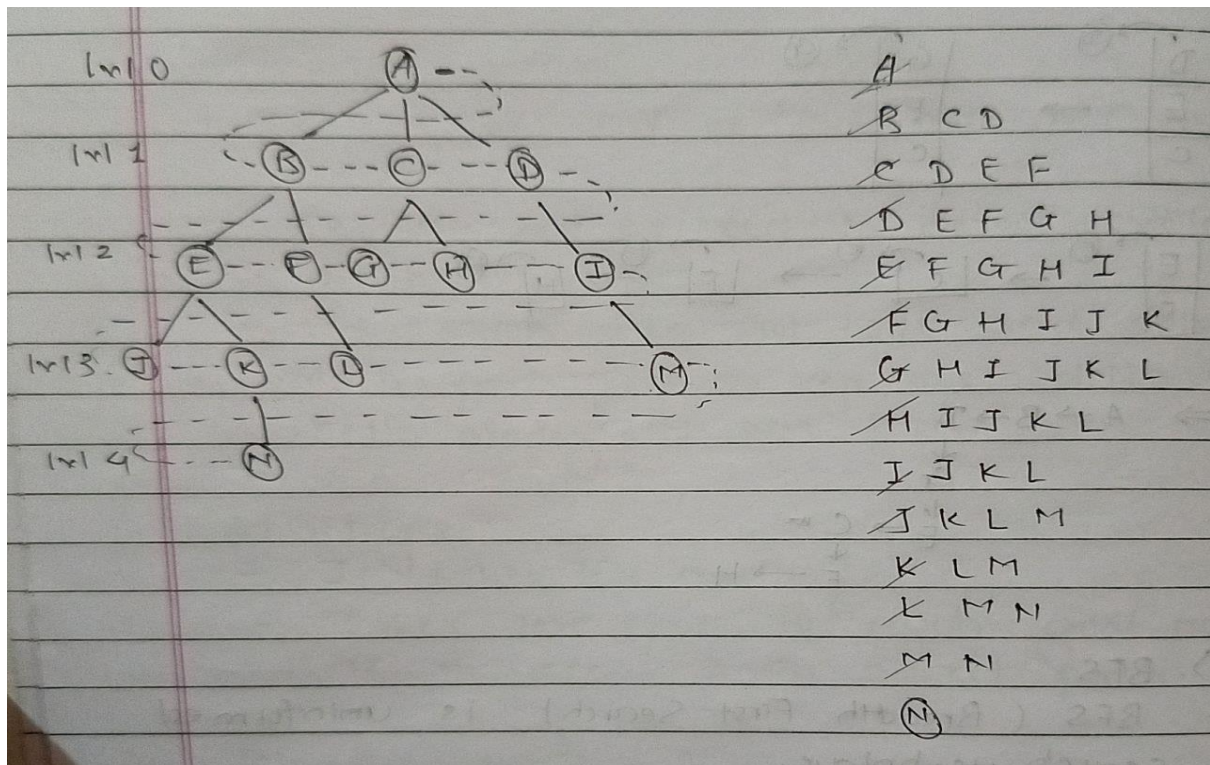 lvl 0 A
lvl 1 B C D
lvl 2 E F G H I
lvl 3. J K L M
lvl 4 N
A
B C D
C D E F
D E F G H
E F G H I
F G H I J K
G H I J K L
H I J K L
I J K L
J K L M
K L M
L M N
M N
N